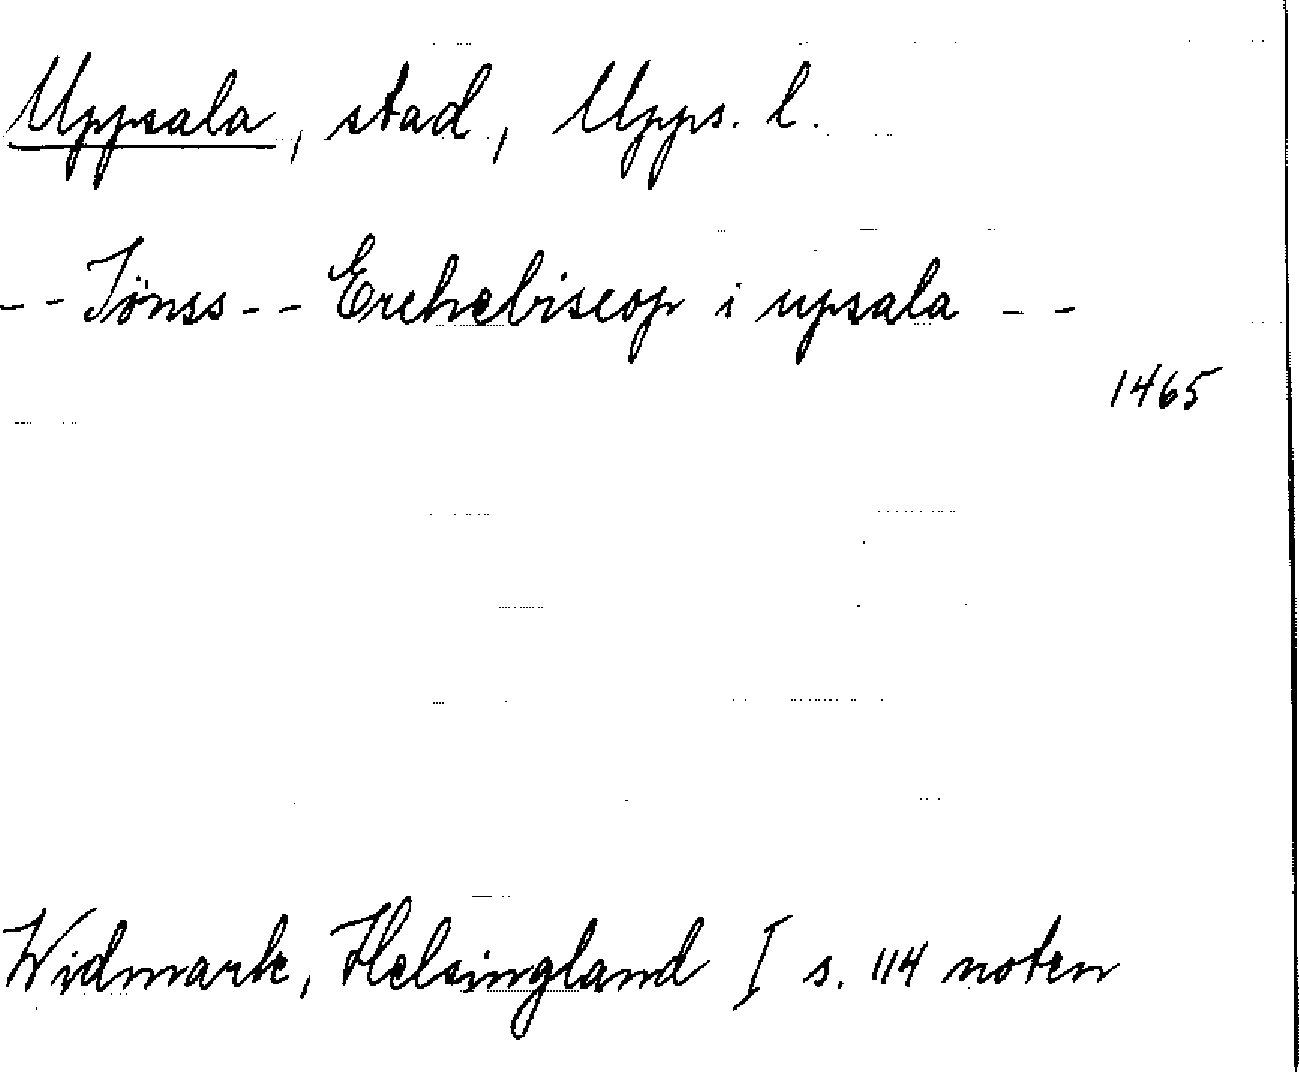 Uppsala, stad, Upps. l.
-- Jönss -- Erchebiscop i upsala --
1465
Widmark, Helsingland I s. 114 noten